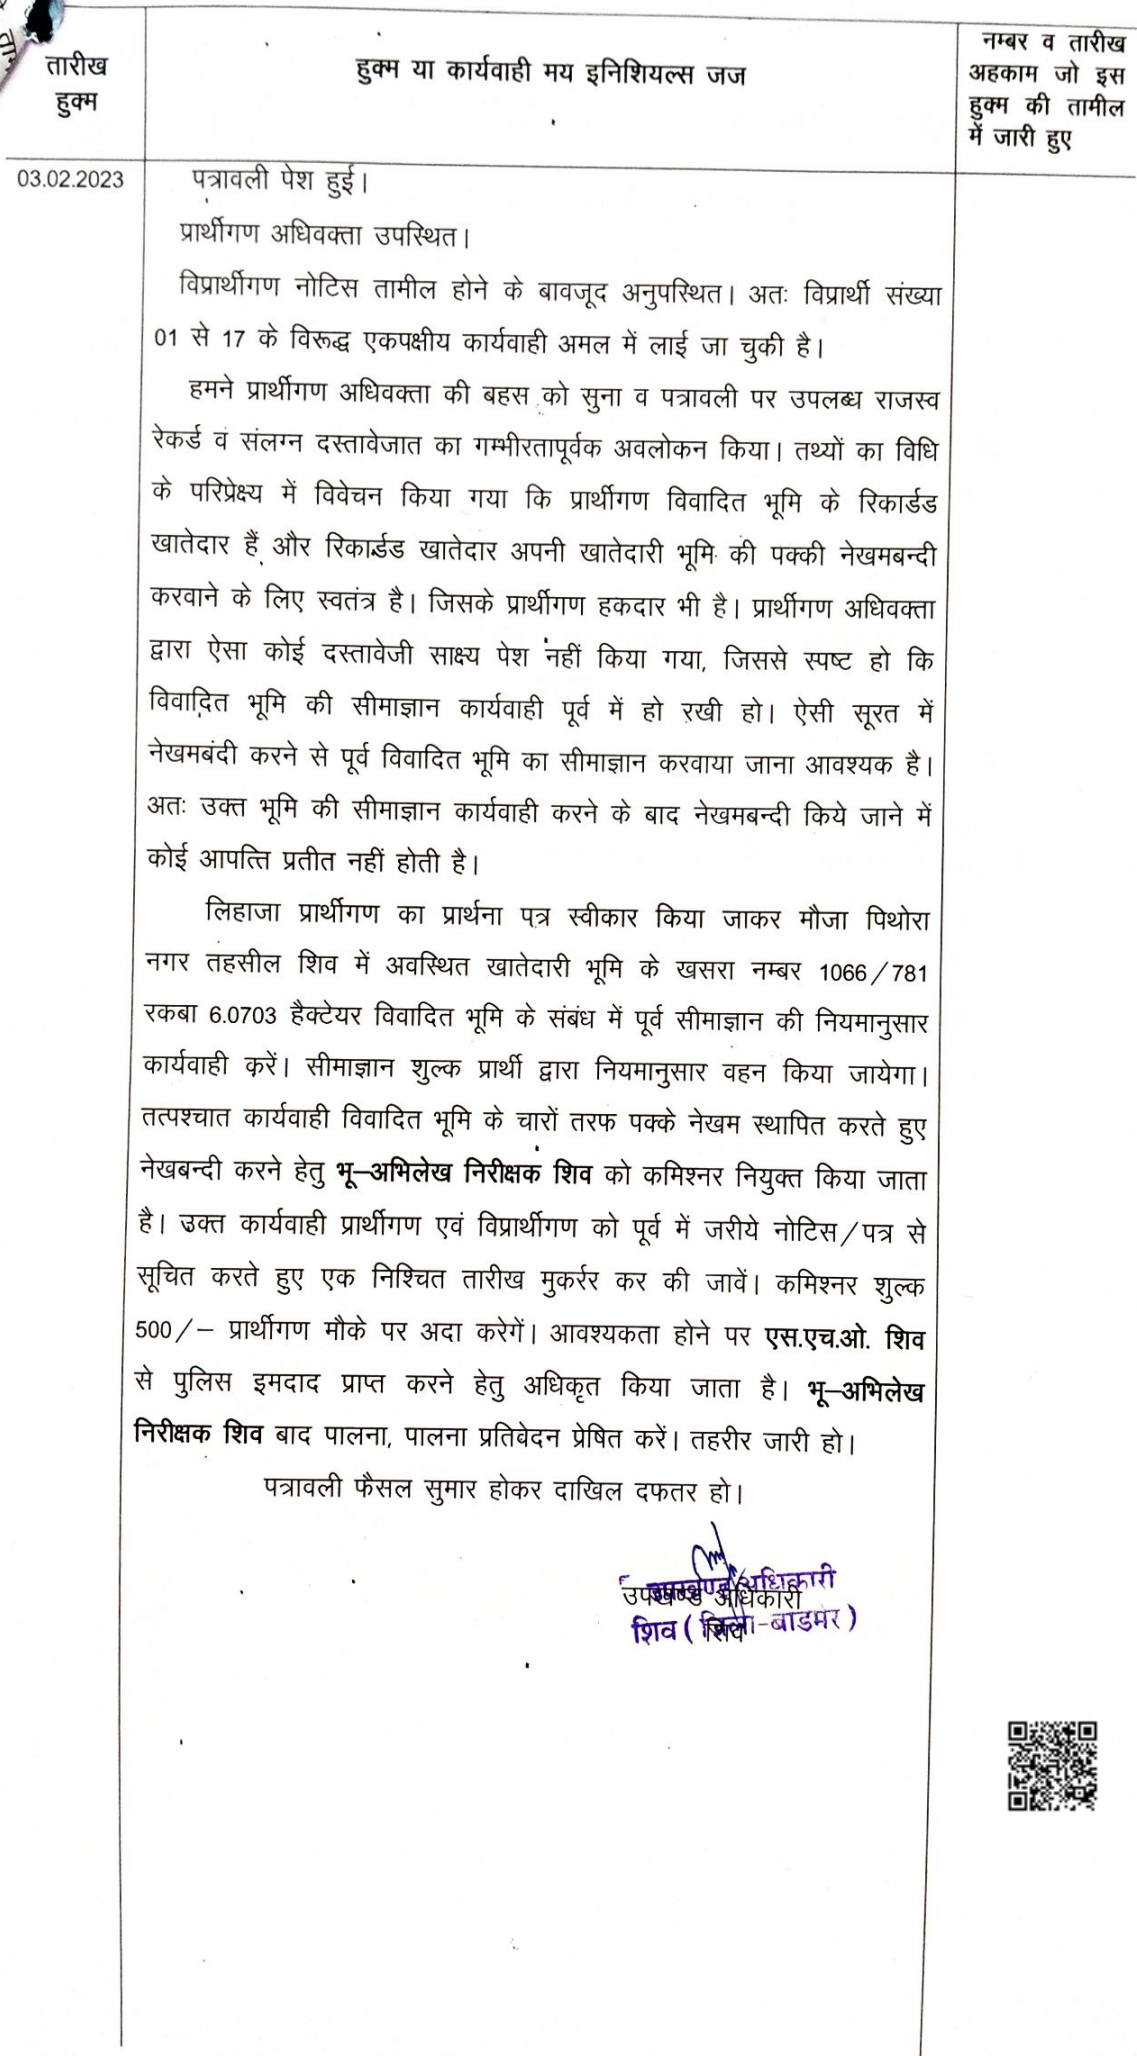 तारीख
हुक्म
हुक्म या कार्यवाही मय इनिशियल्स जज
नम्बर व तारीख
अहकाम जो इस
हुक्म की तामील
में जारी हुए
03.02.2023
पत्रावली पेश हुई।
प्रार्थीगण अधिवक्ता उपस्थित।
विप्रार्थीगण नोटिस तामील होने के बावजूद अनुपस्थित। अतः विप्रार्थी संख्या
01 से 17 के विरूद्ध एकपक्षीय कार्यवाही अमल में लाई जा चुकी है।
हमने प्रार्थीगण अधिवक्ता की बहस को सुना व पत्रावली पर उपलब्ध राजस्व
रेकर्ड व संलग्न दस्तावेजात का गम्भीरतापूर्वक अवलोकन किया। तथ्यों का विधि
के परिप्रेक्ष्य में विवेचन किया गया कि प्रार्थीगण विवादित भूमि के रिकार्डड
खातेदार हैं और रिकार्डड खातेदार अपनी खातेदारी भूमि की पक्की नेखमबन्दी
करवाने के लिए स्वतंत्र है। जिसके प्रार्थीगण हकदार भी है। प्रार्थीगण अधिवक्ता
द्वारा ऐसा कोई दस्तावेजी साक्ष्य पेश नहीं किया गया, जिससे स्पष्ट हो कि
विवादित भूमि की सीमाज्ञान कार्यवाही पूर्व में हो रखी हो। ऐसी सूरत में
नेखमबंदी करने से पूर्व विवादित भूमि का सीमाज्ञान करवाया जाना आवश्यक है।
अतः उक्त भूमि की सीमाज्ञान कार्यवाही करने के बाद नेखमबन्दी किये जाने में
कोई आपत्ति प्रतीत नहीं होती है।
लिहाजा प्रार्थीगण का प्रार्थना पत्र स्वीकार किया जाकर मौजा पिथोरा
नगर तहसील शिव में अवस्थित खातेदारी भूमि के खसरा नम्बर 1066/781
रकबा 6.0703 हैक्टेयर विवादित भूमि के संबंध में पूर्व सीमाज्ञान की नियमानुसार
कार्यवाही करें। सीमाज्ञान शुल्क प्रार्थी द्वारा नियमानुसार वहन किया जायेगा।
तत्पश्चात कार्यवाही विवादित भूमि के चारों तरफ पक्के नेखम स्थापित करते हुए
नेखबन्दी करने हेतु भू–अभिलेख निरीक्षक शिव को कमिश्नर नियुक्त किया जाता
है। उक्त कार्यवाही प्रार्थीगण एवं विप्रार्थीगण को पूर्व में जरीये नोटिस/पत्र से
सूचित करते हुए एक निश्चित तारीख मुकर्रर कर की जावें। कमिश्नर शुल्क
500/– प्रार्थीगण मौके पर अदा करेगें। आवश्यकता होने पर एस.एच.ओ. शिव
से पुलिस इमदाद प्राप्त करने हेतु अधिकृत किया जाता है। भू–अभिलेख
निरीक्षक शिव बाद पालना, पालना प्रतिवेदन प्रेषित करें। तहरीर जारी हो।
पत्रावली फैसल सुमार होकर दाखिल दफतर हो।
उपखण्ड अधिकारी
उपखण्ड अधिकारी
शिव
शिव (जिला-बाडमेर)